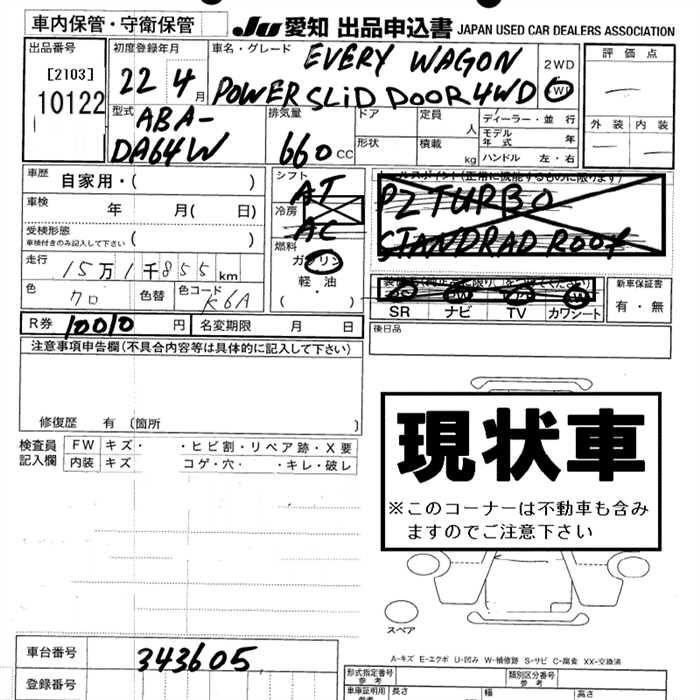 車内保管・守衛保管
JU 愛知 出品申込書 JAPAN USED CAR DEALERS ASSOCIATION
出品番号
[2103]
10122
初度登録年月
22 4月
車名・グレード
EVERY WAGON
POWER SLiD DOOR 4WD
2WD
4WD
評価点
外装 内装
型式
ABA-
DA64W
排気量
660 cc
ドア
形状
定員 人
積載 kg
ディーラー・並行
モデル年式 年
ハンドル 左・右
車歴 自家用・( )
車検 年 月( 日)
受検形態
車検付きのみ記入して下さい ( )
走行 15万1千855 km
色 クロ 色替 色コード K6A
シフト AT
冷房 AC
燃料
ガソリン
軽・油
( ・ )
セールスポイント(正常に機能するものに限ります)
PZ TURBO
STANDRAD ROOF
SR ナビ TV カワシート
新車保証書
有・無
R券 10010 円 名変期限 月 日
後日品
注意事項申告欄(不具合内容等は具体的に記入して下さい)
修復歴 有 (箇所 )
検査員記入欄
FW キズ・ ・ヒビ割・リペア跡・X要
内装 キズ コゲ・穴・ ・キレ・破レ
現状車
※このコーナーは不動車も含み
ますのでご注意下さい
スペア
A-キズ E-エクボ U-凹み W-補修跡 S-サビ C-腐食 XX-交換済
車台番号 343605
登録番号
形式指定番号
参考
類別区分番号
参考
車庫証明用
参考
長さ 幅 高さ